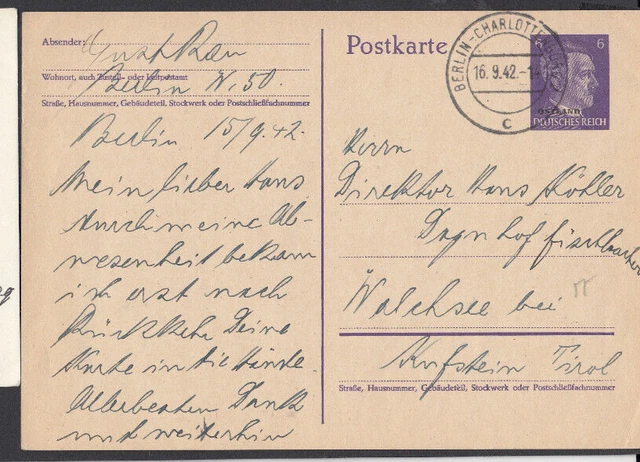 Absender: Gustav Rau
Wohnort, auch Zustell- oder Leitpostamt
Berlin W. 50.
Straße, Hausnummer, Gebäudeteil, Stockwerk oder Postschließfachnummer
Berlin 15/9.42.
Mein lieber Hans
durch meine Ab-
wesenheit bekam
ich erst nach
Rückkehr Deine
Karte in die Hände.
Allerbesten Dank
und weiterhin
Postkarte
BERLIN-CHARLOTTENBURG
16.9.42
c
6 6
OSTLAND
DEUTSCHES REICH
Herrn
Direktor Hans Köhler
Walchsee bei
Kufstein Tirol
Straße, Hausnummer, Gebäudeteil, Stockwerk oder Postschließfachnummer